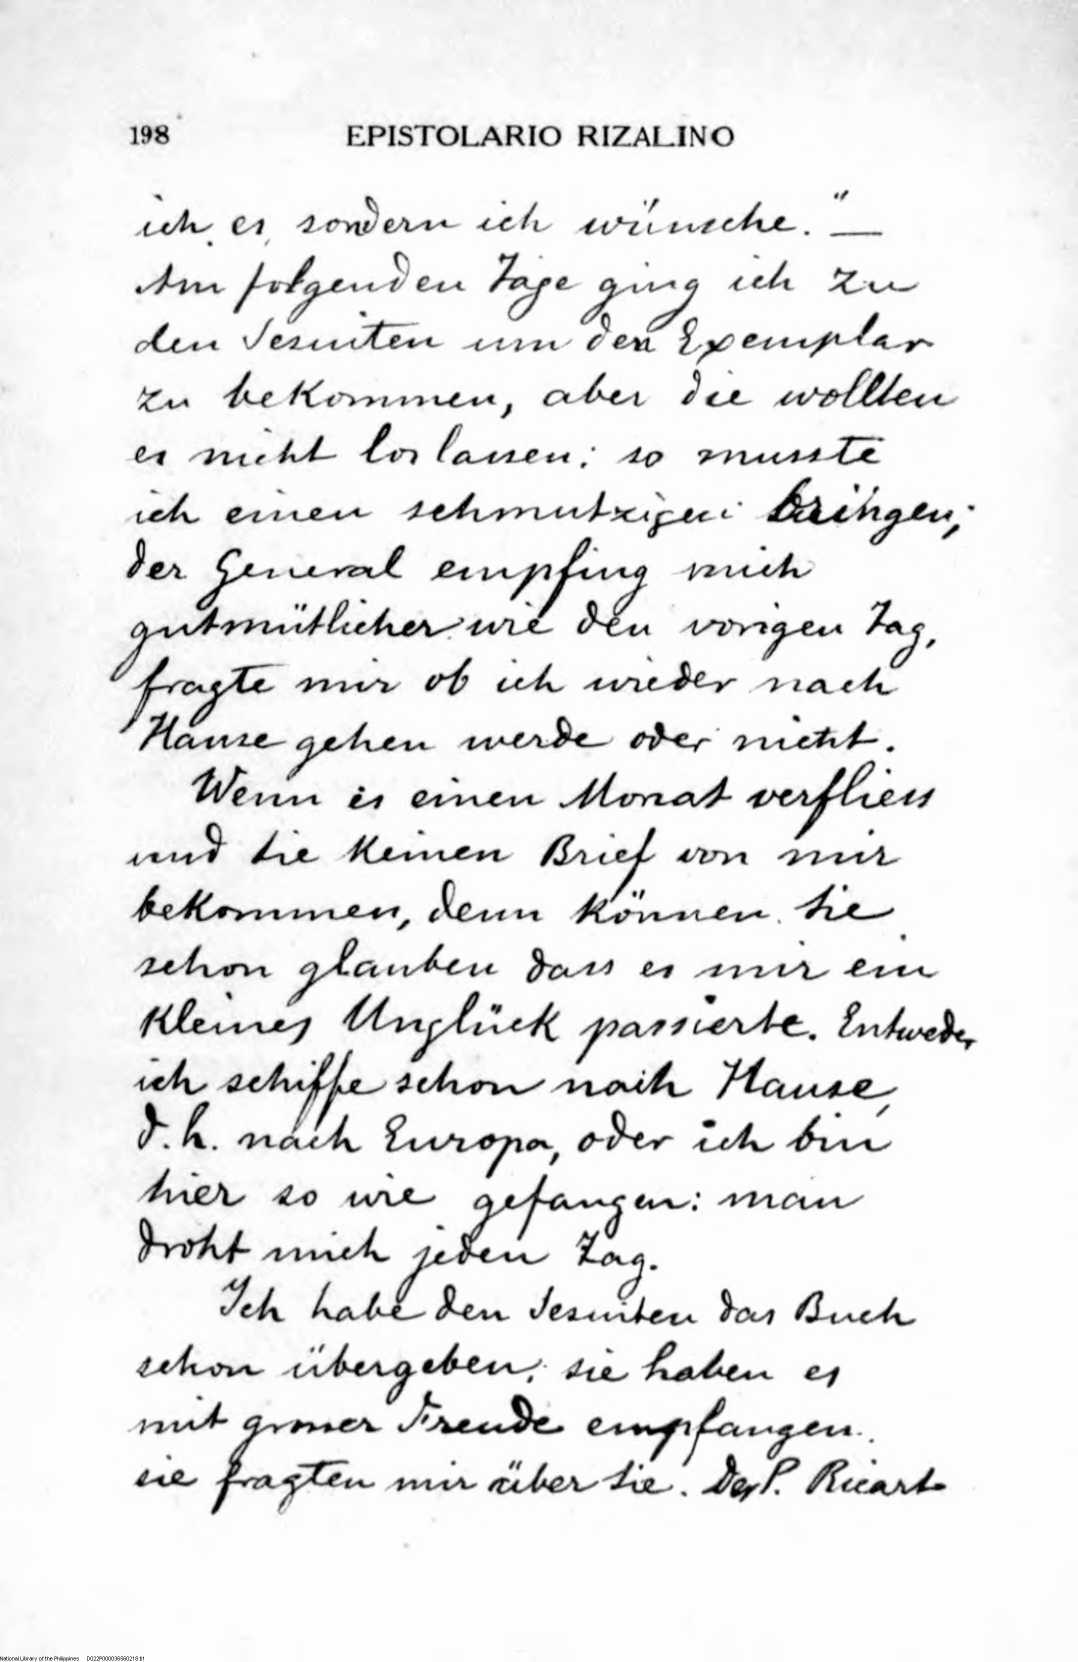 198 EPISTOLARIO RIZALINO
ich es, sondern ich wünsche." —
Am folgenden Tage ging ich zu
den Jesuiten um den Exemplar
zu bekommen, aber die wollten
es nicht loslassen; so musste
ich einen schmutzigen bringen;
der General empfing mich
gutmütlicher wie den vorigen Tag,
fragte mir ob ich wieder nach
Hause gehen werde oder nicht.
Wenn es einen Monat verfliess
und Sie keinen Brief von mir
bekommen, denn können Sie
schon glauben dass es mir ein
kleines Unglück passierte. Entweder
ich schiffe schon nach Hause,
d.h. nach Europa, oder ich bin
hier so wie gefangen: man
droht mich jeden Tag.
Ich habe den Jesuiten das Buch
schon übergeben; sie haben es
mit grosser Freude empfangen.
sie fragten mir über Sie. Der P. Ricart
National Library of the Philippines